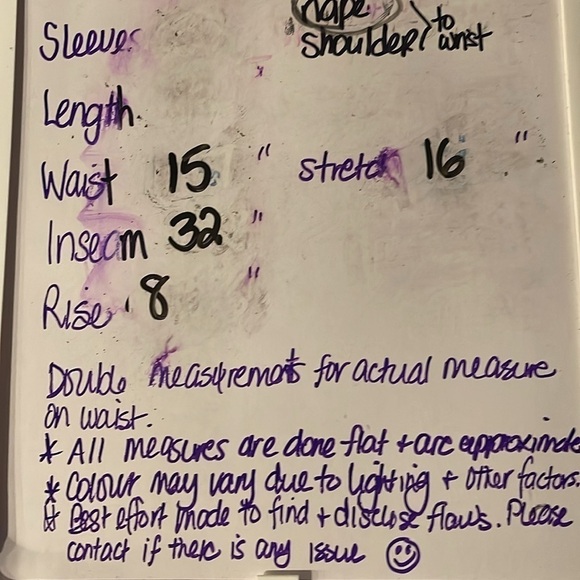 nape
Sleeves shoulder to wrist
Length
Waist 15 " stretch 16 "
Inseam 32 "
Rise 8 "
Double measurements for actual measure
on waist.
* All measures are done flat + are approximate
* Colour may vary due to lighting + other factors.
* Best effort made to find + disclose flaws. Please
contact if there is any issue ☺